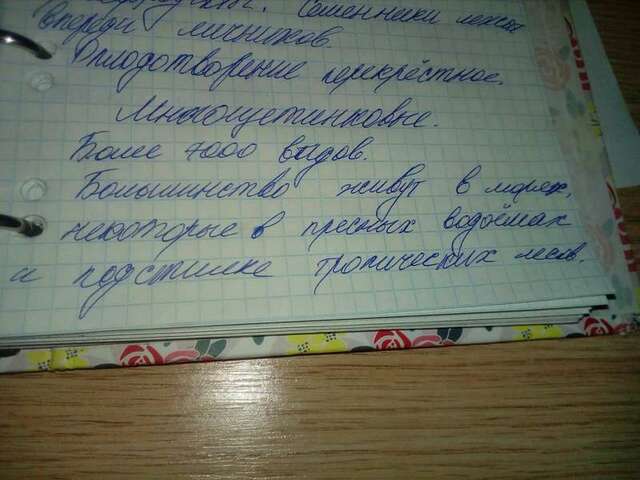 Семенники лежат
впереди яичников.
Оплодотворение перекрёстное.
Многощетинковые.
Более 7000 видов.
Большинство живут в морях,
некоторые в пресных водоёмах
и подстилке тропических лесов.